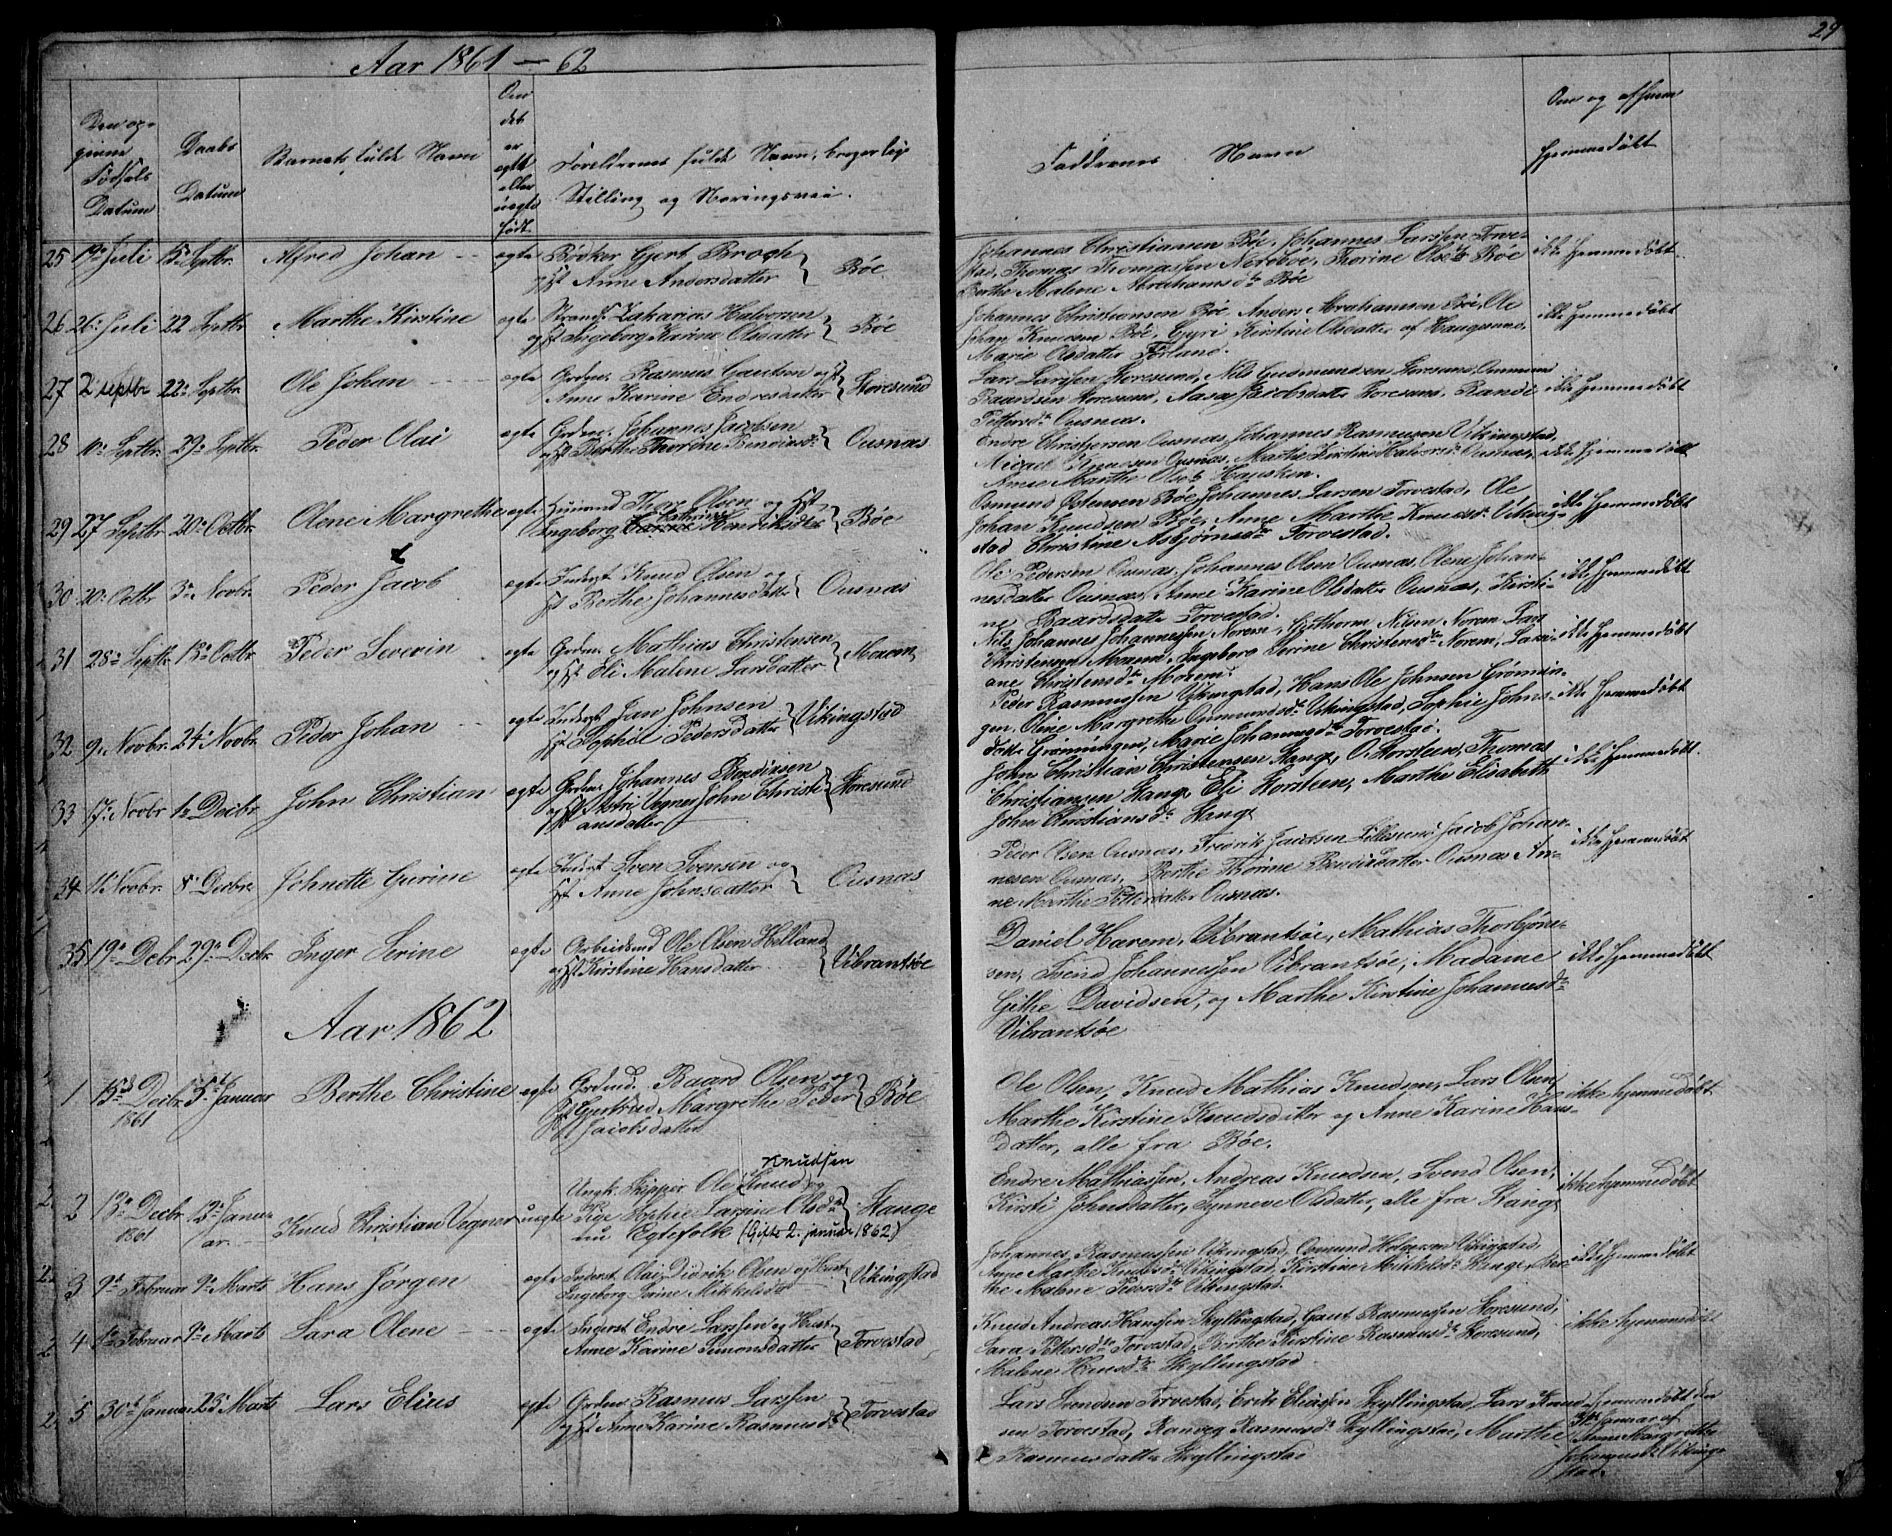 29
Aar 1861 — 62
Den op-
givne
Födsels
Datum
Daabs
Datum
Barnets fulde Navn
Om
det
er
egte
eller
uegte
födt.
Foreldrenes fulde Navn, borgerlige
Stilling og Næringsvei.
Faddrenes Navn
Om og af hvem
hjemmedöbt
25 Juli 15 Septbr. Alfred Johan egte Bödker Gjert Brogh
og Hst Anne Andersdatter Böe
Johannes Christiansen Böe, Johannes Larssen Torve-
stad, Thomas Thomassen Nordböe, Thorine Olsdtr Böe
Berthe Malene Abrahamsdtr Böe
ikke hjemmedöbt
26 26 Juli 22 Septbr Marthe Kirstine egte Strands. Zakarias Halvorsen
og Hst Ingeborg Karine Olsdatter Böe
Johannes Christiansen Böe, Anders Abrahamsen Böe, Ole
Johan Knudsen Böe, Gyri Kirstine Olsdatter af Haugesund,
Marie Olsdatter Förland.
ikke hjemmedöbt
27 2 septbr 22 Septbr. Ole Johan egte Grdmd. Rasmus Gautsen og Hst
Anne Karine Endresdatter Storesund
Lars Larssen Storesund, Nils Gudmundsen Storesund, Ommund
Baardsen Storesund, Aasa Jacobsdatter Storesund, Randi
Pettersdtr Ousnæs.
ikke hjemmedöbt
28 10 Septbr. 29 Septbr. Peder Olai egte Grdmd. Johannes Jacobsen
og Hst Berthe Thorine Bendixsdr Ousnæs
Endre Christophersen Ousnæs, Johannes Rasmussen Vikingstad,
Knudsen Ousnæs, Marthe Kirstine Halvorsdr Ousnæs,
Anne Marthe Olsdtr Hausken.
ikke hjemmedöbt
29 27 Septbr 20 Octbr. Olene Margrethe egte Huusmd Thore Olsen og Hst
Kathrine
Ingeborg Henriksdtr Böe
Osmund Ostensen Böe, Johannes Larsen Torvestad, Ole
Johan Knudsen Böe, Anne Marthe Knudsdr. Viking-
stad Christine Asbjörnsdr Torvestad.
ikke hjemmedöbt
30 20 Octbr 3 Novbr. Peder Jacob egte Inderst Knud Olsen og
Hst Berthe Johannesdatter Ousnæs
Ole Pedersen Ousnæs, Johannes Olsen Ousnæs, Olene Johan-
nesdatter Ousnæs, Anne Karine Olsdatter Ousnæs, Kirsti-
ne Baardsdatter Torvestad.
ikke hjemmedöbt
31 28 Septbr 13 Octbr. Peder Severin egte Grdmd. Mathias Christensen
og Hst Eli Malene Larsdatter
Nils Johannes Johannessen Norem, Guthorm Nilsen Norem, Lars
Christensen, Ingeborg Serine Christensdtr Norem, Lavi-
ane Christensdr
ikke hjemmedöbt
32 9 Novbr. 24 Novbr. Peder Johan egte Inderst Jan Johnsen
Hst Sophie Pedersdatter Vikingstad
Peder Rasmussen Vikingstad, Hans Ole Johnsen Grönnin-
gen, Oline Margrethe Ommundsdr. Vikingstad, Sophie Johns-
datter Grönningen, Marie Johannesdtr Torvestad.
ikke hjemmedöbt
33 17 Novbr 1 Decbr. John Christian egte Grdmd. Johannes Bendixsen
og Hst Vegner John Christi-
ansdatter Storesund
John Christian Christensen Stange, O. Storsteen, Thomas
Christiansen Stange, Eli Storsteen, Marthe Elisabeth
John Christiansdr. Stange
ikke hjemmedöbt
34 11 Novbr. 8 Decbr. Johnette Gurine egte Inderst Sven Svensen og
Hst Anne Johnsdatter Ousnæs
Peder Olsen Ousnæs, Fredrik Jacobsen Lillesund, Jacob Johan-
nesen Ousnæs, Berthe Thorine Bendixsdatter Ousnæs, An-
ne Marthe Pettersdatter Ousnæs.
ikke hjemmedöbt
35 19 Debr 29 Decbr. Inger Serine egte Arbeidsmd Ole Olsen Helland
og Hst Kirstine Hansdatter Vibrantsöe
Daniel Harem, Vibrantsöe, Mathias Thorbjörn-
sen, Svend Johannessen Vibrantsöe, Madame
Githe Davidsen, og Marthe Kirstine Johannesdr
Vibrantsöe
ikke hjemmedöbt
Aar 1862
1 15 Decbr. 5 Januar Berthe Christine egte Grdmd. Baard Olsen og
1861
Hst Gjertrud Margrethe Peder
Jacobsdatter Böe
Ole Olsen, Knud Mathias Knudsen, Lars Olsen,
Marthe Kirstine Knudsdatter og Anne Karine Hans-
datter, alle fra Böe.
ikke hjemmedöbt
2 13 Decbr. 12 Janu-
1861 ar. Knud Christian Vegner uegte
Knudsen
Ungk. Skipper Ole Knud og
Pige Sophie Larsine Olsdr
nu Egtefolk (Gifte 2. januar 1862) Stange
Endre Mathiassen, Andreas Knudsen, Svend Olsen,
Kirsti Johnsdatter, Synneve Olsdatter, alle fra Stange
ikke hjemmedöbt
3 9 Februar 9 Marts Hans Jörgen egte Inderst Olai Didrik Olsen og Hust
Ingeborg Serine Mikkelsdr Vikingstad
Johannes Rasmussen Vikingstad, Osmund Holgersen Vikingstad,
Anne Marthe Knudsdr Vikingstad, Kirstine Mikkelsdr Stange, Ber-
the Malene Pedersdr Vikingstad.
ikke hjemmedöbt
4 Februar 9 Marts Sara Olene egte Inderst Endre Larssen og Hust
Anne Karine Simonsdatter Torvestad
Knud Andreas Hanssen Skyllingstad, Gaut Rasmussen Storesund,
Sara Pettersdtr Torvestad, Berthe Kirstine Rasmusdr Storesund,
Malene Skyllingstad
ikke hjemmedöbt
5 30 Januar 23 Marts Lars Elius egte Grdmd Rasmus Larssen
og Hst Anne Karine Rasmusdr Torvestad
Lars Svendsen Torvestad, Erik Eliassen Skyllingstad, Lars Knud-
sen Torvestad, Ranveg Rasmusdr Skyllingstad, Marthe
Rasmusdatter Skyllingstad
hjemmedöbt den
31 Januar af
Anne Margrethe
Johannesdr Viking-
stad.